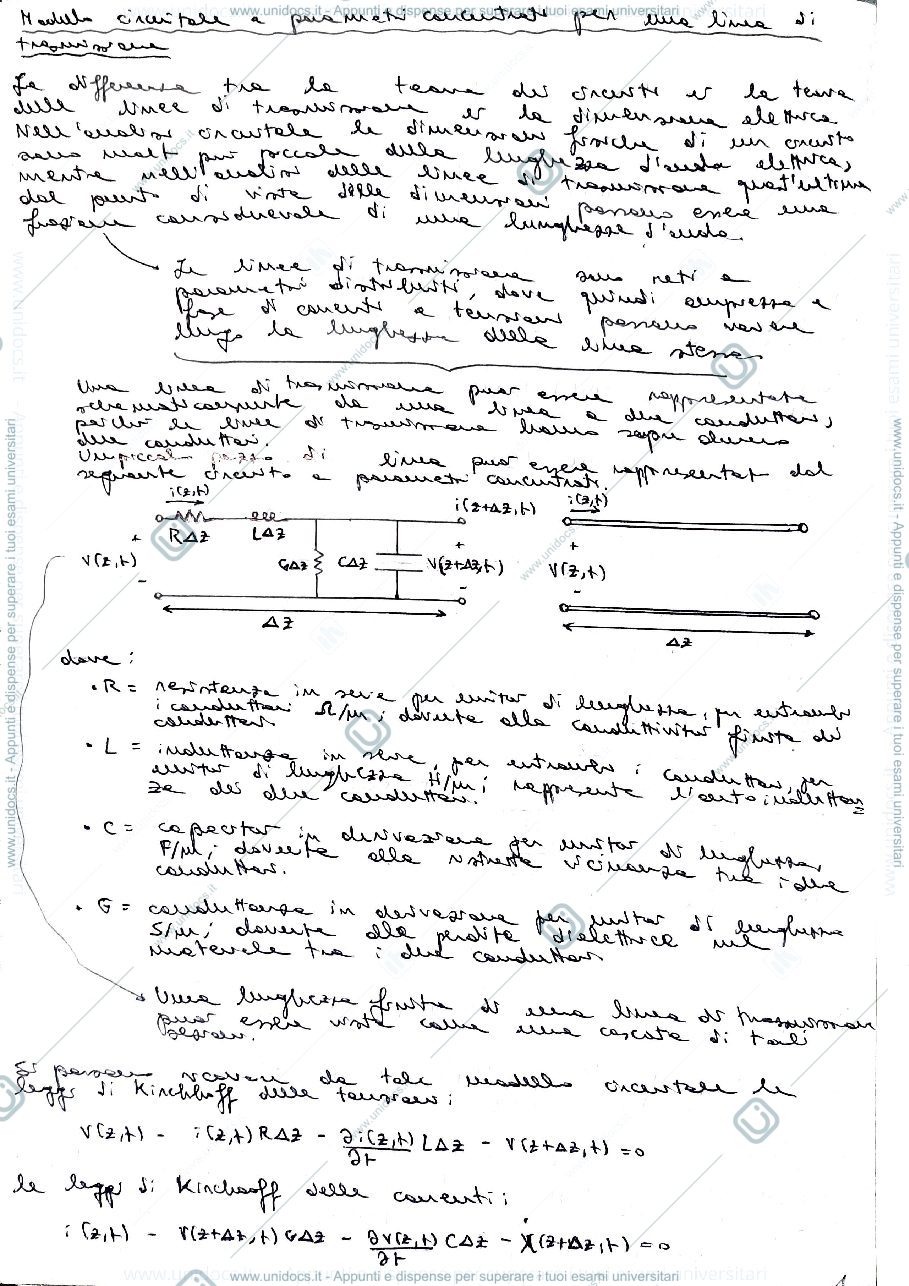 Modello circuitale a parametri concentrati per una linea di
trasmissione
La differenza tra la teoria dei circuiti e la teoria
delle linee di trasmissione è la dimensione elettrica
Nell'analisi circuitale le dimensioni fisiche di un circuito
sono molt più piccole della lunghezza d'onda elettrica,
mentre nell'analisi delle linee di trasmissione quest'ultime
dal punto di vista delle dimensioni possono essere una
frazione considerevole di una lunghezza d'onda.
Le linee di trasmissione sono reti a
parametri distribuiti, dove quindi ampiezza e
fase di correnti e tensioni possono variare
lungo la lunghezza della linea stessa
Una linea di trasmissione può essere rappresentata
schematicamente da una linea a due conduttori,
perché le linee di trasmissione hanno sempre almeno
due conduttori.
Un piccolo pezzo di linea può essere rappresentat dal
seguente circuito a parametri concentrati.
i(z,t) i(z+Δz,t) i(z,t)
RΔz LΔz
+ + +
V(z,t) GΔz CΔz V(z+Δz,t) V(z,t)
- - -
Δz Δz
dove:
• R = resistenza in serie per unità di lunghezza, per entrambi
i conduttori Ω/m; dovuta alla conduttività finita dei
conduttori
• L = induttanza in serie, per entrambi i conduttori, per
unità di lunghezza H/m; rappresenta l'autoinduttan
za dei due conduttori.
• C = capacità in derivazione per unità di lunghezza,
F/m; dovuta alla ristretta vicinanza tra i due
conduttori.
• G = conduttanza in derivazione per unità di lunghezza
S/m; dovuta alle perdite dielettriche nel
materiale tra i due conduttori
Una lunghezza finita di una linea di trasmissione
può essere vista come una cascata di tali
sezioni.
Si possono ricavare da tale modello circuitale le
leggi di Kirchhoff delle tensioni:
V(z,t) - i(z,t)RΔz - ∂i(z,t)/∂t LΔz - V(z+Δz,t) = 0
le leggi di Kirchhoff delle correnti:
i(z,t) - V(z+Δz,t)GΔz - ∂V(z,t)/∂t CΔz - i(z+Δz,t) = 0
www.unidocs.it - Appunti e dispense per superare i tuoi esami universitari